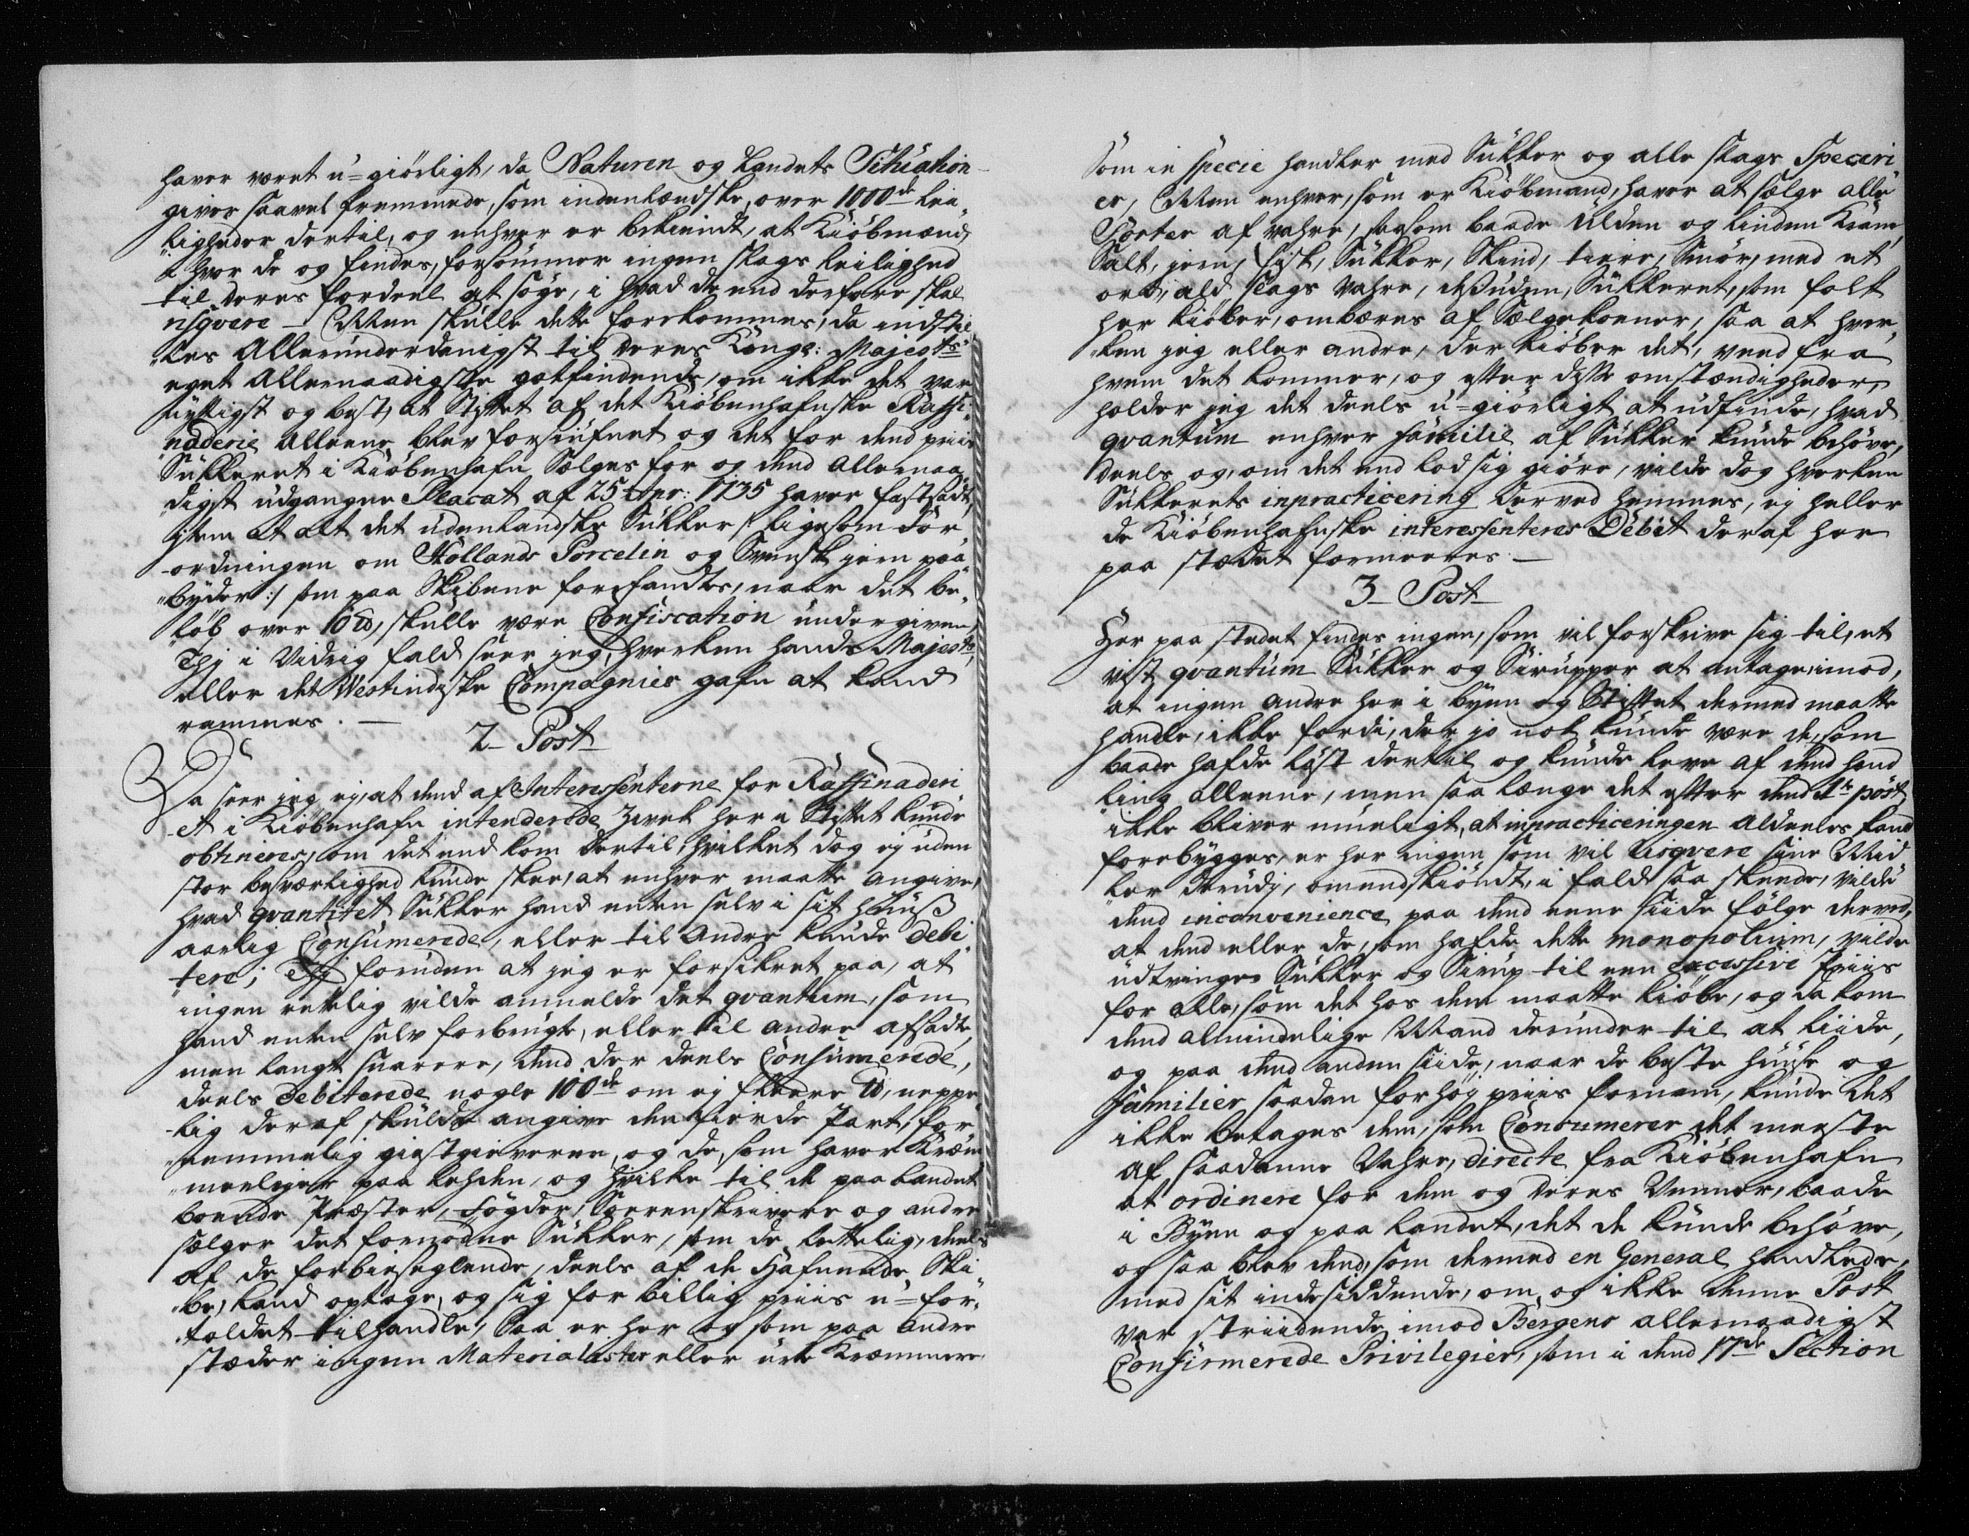 haver været u-giørligt, da Naturen og Landets Situation
giver saavel fremmede, som indenlandske, over 1000de Lei-
ligheder dertil, og enhver er bekiendt, at Kiøbmænd,
hvor de og findes, forsømmer ingen slags Leilighed
til deres fordeel at søge, i hvad de end derfore skal
risqvere — Men skulle dette forekommes, da indstil-
les Allerunderdanigst til Deres Kongl: Majests
eget Allernaadigste gotfindende, om ikke det var
nyttigst og best, at Stiftet af det Kiøbenhafnske Raffi-
naderie alleene blev forsiufnet og det for dend priis
Sukkeret i Kiøbenhafn Sælges for og dend Allernaa-
digst udgangne Placat af 25 Apr: 1735 haver fastsadt,
item at alt det udenlandske Sukker /: ligesom For-
ordningen om Hollands Porcelin og Svensk jern paa-
byder :/ som paa Skibene forefandtes, naar det be-
løb over 10 ℔, skulle være Confiscation undergiven,
Thj i Vidrig fald seer jeg, hverken hands Majests
eller det Westindiske Compagnies gafn at kand
rammes. —
2 Post
Da seer jeg ej, at dend af Interessenterne for Raffinaderi-
et i Kiøbenhafn intenderede Zweck her i Stiftet kunde
obtineres, om det end kom dertil, hvilket dog ej uden
stor besværlighed kunde skee, at enhver maatte angive,
hvad qvantitet Sukker hand enten selv i sit Huuß
aarlig Consumerede, eller til andre kunde debi-
tere; Thj foruden at jeg er forsikret paa, at
ingen rettelig vilde anmelde det qvantum, som
hand enten selv forbrugte, eller til andre afsadte,
men langt snarere, dend der deels Consumerede,
deels debiterede nogle 100de om ej fleere ℔, neppe-
lig deraf skulde angive den fierde Part, for-
nemmelig giestgieverne, og de, som haver Kræm-
merlejer paa Lehden, og hvilke til de paa Landet
boende Præster, Fogder, Sorenskrivere og andre
sælger det fornødne Sukker, som de lettelig, deels
af de forbiseglende, deels af de Hafnende Ski-
be, kand optage, og sig for billig priis u-for-
toldet tilhandle, Saa er her og som paa andre
stæder ingen Materialister eller urte Kræmmere
Som in specie handler med Sukker og alle slags Speceri-
er, Men enhver, som er Kiøbmand, haver at sælge alle
Sorter af vahre, saasom baade Ulden og Linden Kram,
Salt, jern, fisk, Sukker, Skind, tiere, Smør, med et
ord, ald slags vahre, desuden, Sukkeret, som folk
her kiøber, ombæres af Sælgekoener, saa at hver-
ken jeg eller andre, der kiøber det, veed fra
hvem det kommer, og efter disse omstændigheder
holder jeg det deels u-giørligt at udfinde, hvad
qvantum enhver familie af Sukker kunde behøve,
deels og, om det end lod sig giøre, vilde dog hverken
Sukkerets inpracticering derved hemmes, ej heller
de Kiøbenhafnske interessenteres Debit deraf her
paa stædet formeeres. —
3 Post
Her paa stedet findes ingen, som vil forskrive sig til, et
vist qvantum Sukker og Sirupper at antage, imod,
at ingen andre her i Byen og Stiftet dermed maatte
handle, ikke fordi, der jo nok kunde være de, som
baade hafde lyst dertil og kunde leve af dend hand-
ling alleene, men saa længe det efter dend 1te post
ikke bliver mueligt, at inpracticeringen aldeeles kand
forebygges, er her ingen som vil risqvere sine Mid-
ler derudj, omendskiøndt, i fald saa skeede, vilde
dend inconvenience paa dend eene siide følge derved,
at dend eller de, som hafde dette monopolium, vilde
udtvinge Sukker og Sirup til een excessive Priis
for alle, som det hos dem maatte kiøbe, og da kom
dend almindelige Mand derunder til at liide,
og paa dend anden siide, naar de beste Huuse og
familier saadan for høj priis fornam, kunde det
ikke betages dem, som Consumerer det meeste
af saadanne Vahre, directe fra Kiøbenhafn
at ordinere for dem og deres Venner, baade
i Byen og paa Landet, det de kunde behøve,
og saa blev dend, som dermed en General handlede,
med sit indesiddende, om og ikke denne Post
var striidende imod Bergens allernaadigst
Confirmerede Privilegier, som i dend 17de Section